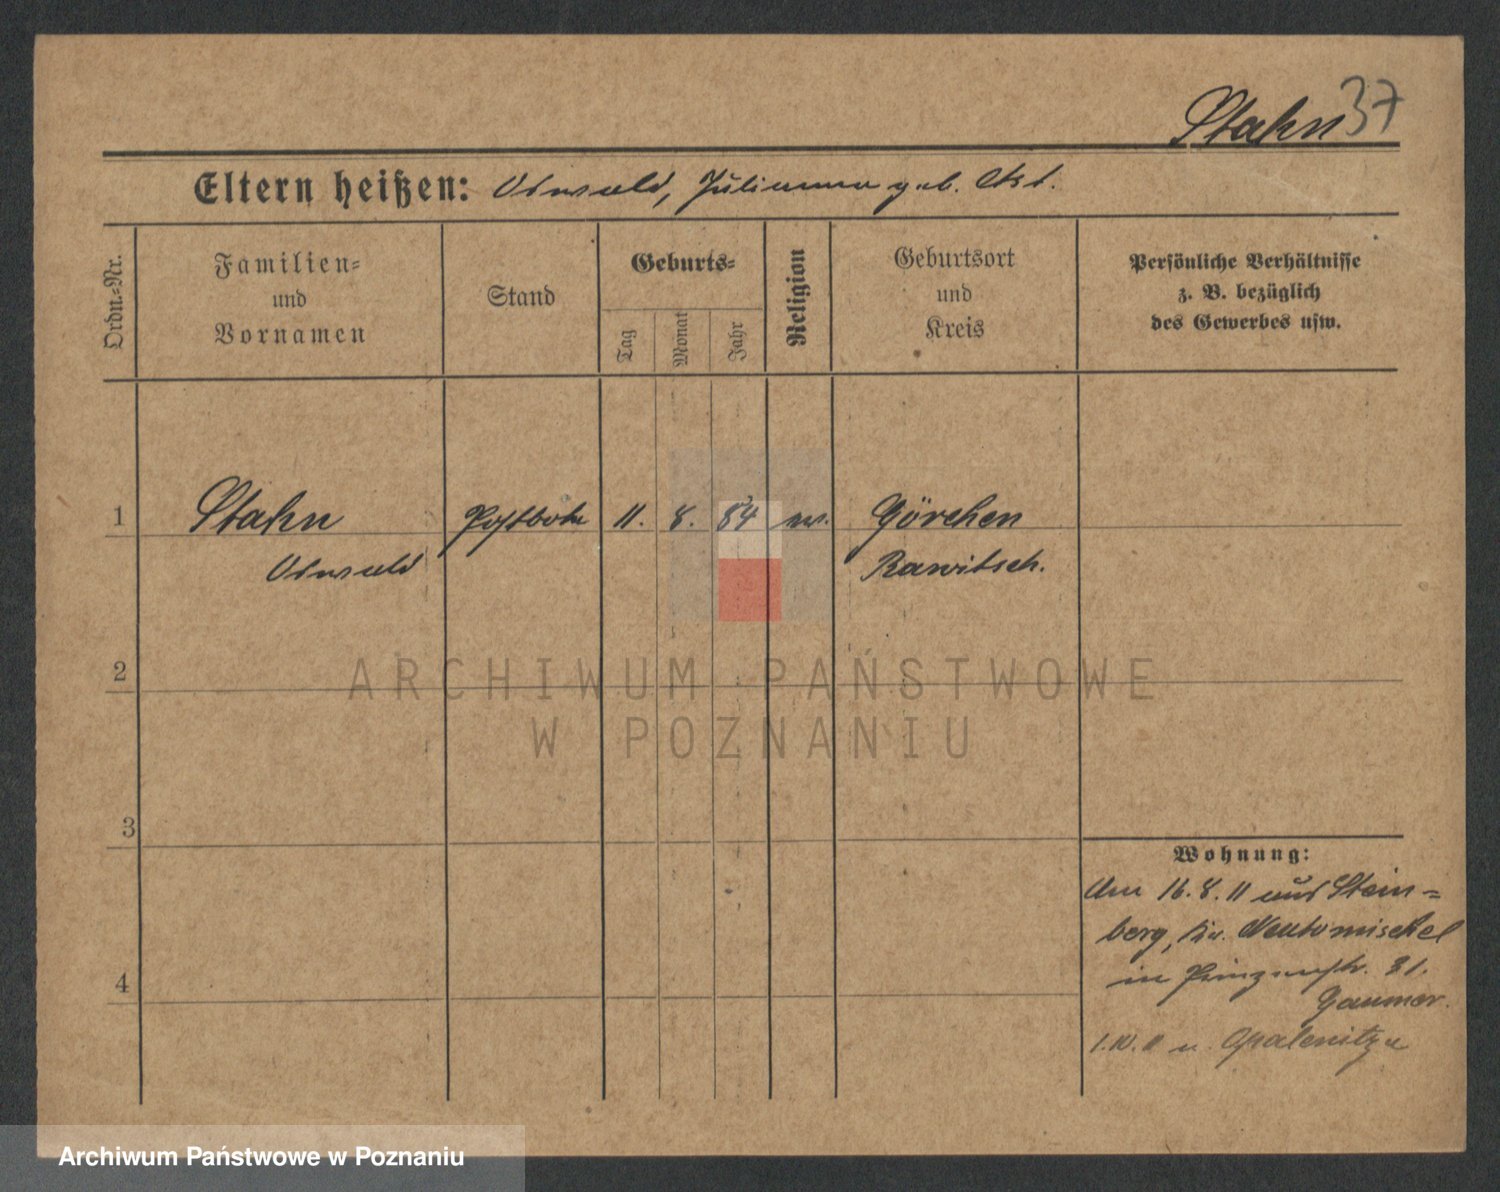 Stahn 37
Eltern heißen: Oswald, Julianna geb.
Ordn.=Nr.
Familien=
und
Vornamen
Stand
Geburts=
Tag
Monat
Jahr
Religion
Geburtsort
und
Kreis
Persönliche Verhältnisse
z. B. bezüglich
des Gewerbes usw.
1
Stahn
Oswald
Postbote
11.
8.
84
ev.
Görchen
Rawitsch.
2
ARCHIWUM PAŃSTWOWE
W POZNANIU
3
Wohnung:
Am 16.8.11 aus Stein=
berg, Kr. Neutomischel
in Prinzenstr. 31.
1.10.11 n. Opalenitza
4
Archiwum Państwowe w Poznaniu